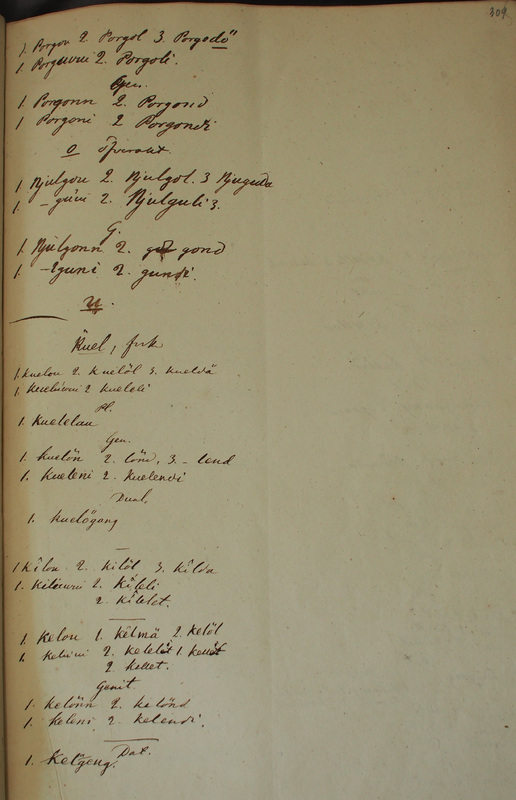 309
1. Porgon 2. Porgol 3. Porgodö
1. Porguvni 2. Porgoli.
Gen.
1. Porgonn 2. Porgond
1 Porgoni 2 Porgondi
o
1 Njulgon 2. Njulgol. 3 Njuguda
1. - guvi 2. Njulguli 3.
G.
1. Njulgonn 2. gond
1. - lguni 2. gundi.
U.
Kuel, fisk
1. Kuelon 2. Kuelöl 3. Kueldä
1. 2 Kueleli
Pl.
1. Kuelelau
Gen.
1. Kuelön 2. lönd, 3. - lend
1. Kueleni 2. Kuelendi
Dual.
1. Kuelögang
1 Kîlon 2. Kilöl 3. Kilda
1. 2. Kileli
2. Kîlelet.
1. Kelon 1. Kelmä 2. Kelöl
1. Keluvni 2.
2 Kellet.
Genit.
1. Kelönn 2. Kelönd
1. Keleni 2. Kelendi.
Dat.
1. Kelgeng.